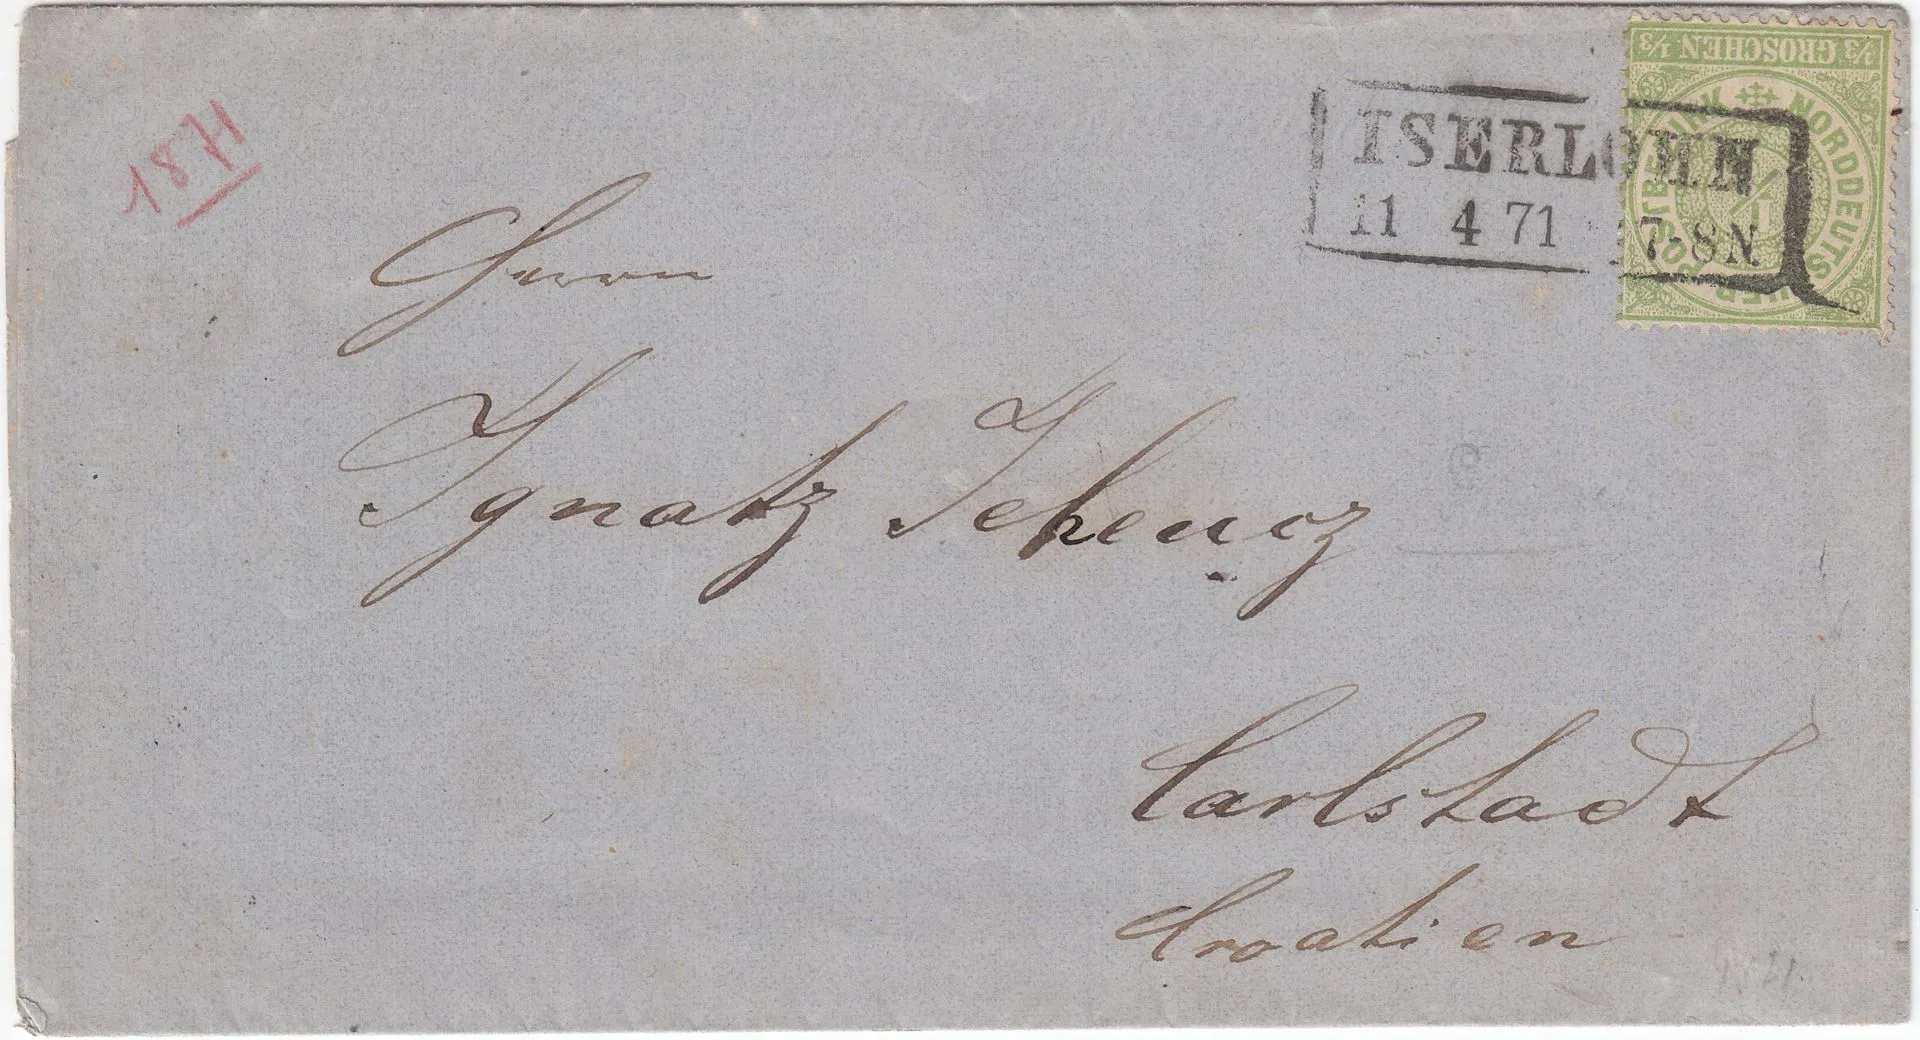 1871
ISERLOHN
11 4 71 7-8N
1/3 GROSCHEN 1/3
NORDDEUTSCHER POSTBEZIRK
Herrn
Ignatz
Carlstadt
Croatien